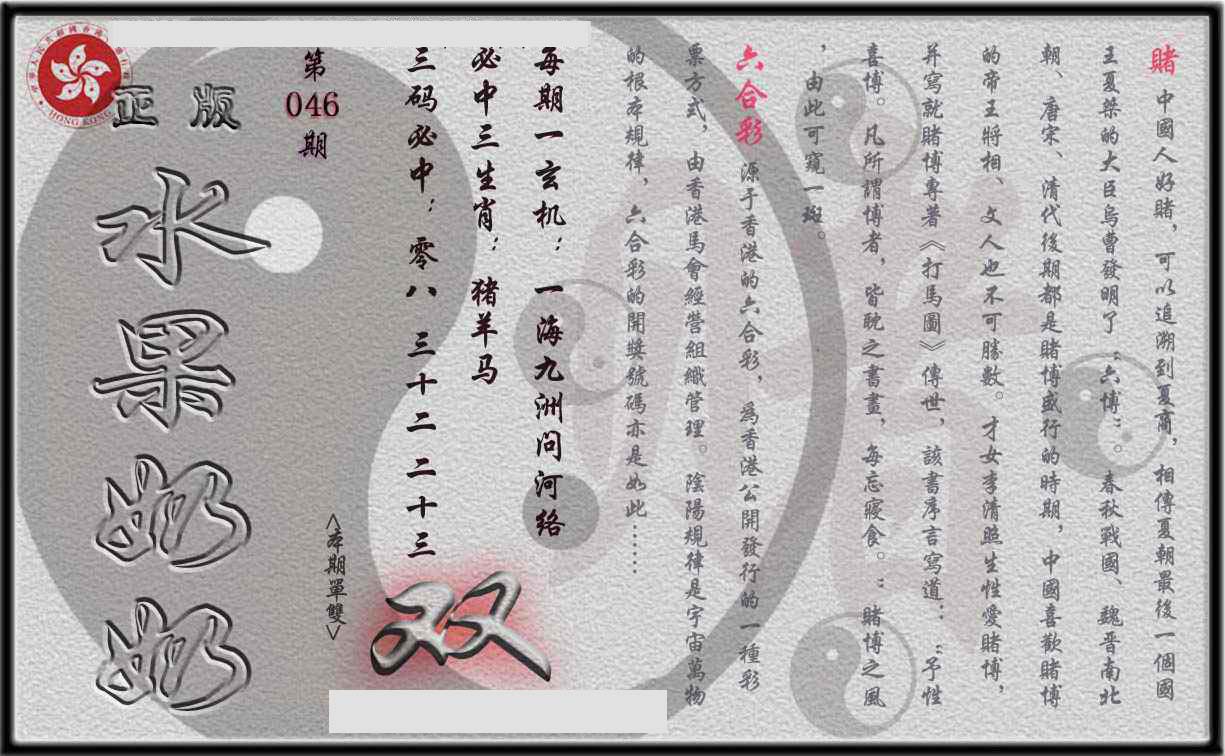 賭 中國人好賭，可以追溯到夏商，相傳夏朝最後一個國
王夏桀的大臣烏曹發明了“六博”。春秋戰國、魏晋南北
朝、唐宋、清代後期都是賭博盛行的時期，中國喜歡賭博
的帝王將相、文人也不可勝數。才女李清照生性愛賭博，
并寫就賭博專著《打馬圖》傳世，該書序言寫道：“予性
喜博。凡所謂博者，皆耽之書畫，每忘寢食。”賭博之風
，由此可窺一斑。
六合彩 源于香港的六合彩，為香港公開發行的一種彩
票方式，由香港馬會經營組織管理。陰陽規律是宇宙萬物
的根本規律，六合彩的開獎號碼亦是如此……
每期一玄机：一海九洲问河络
必中三生肖：猪羊马
三码必中：零八 三十二 二十三
双
<本期單雙>
第
046
期
正版
水果奶奶
HONG KONG